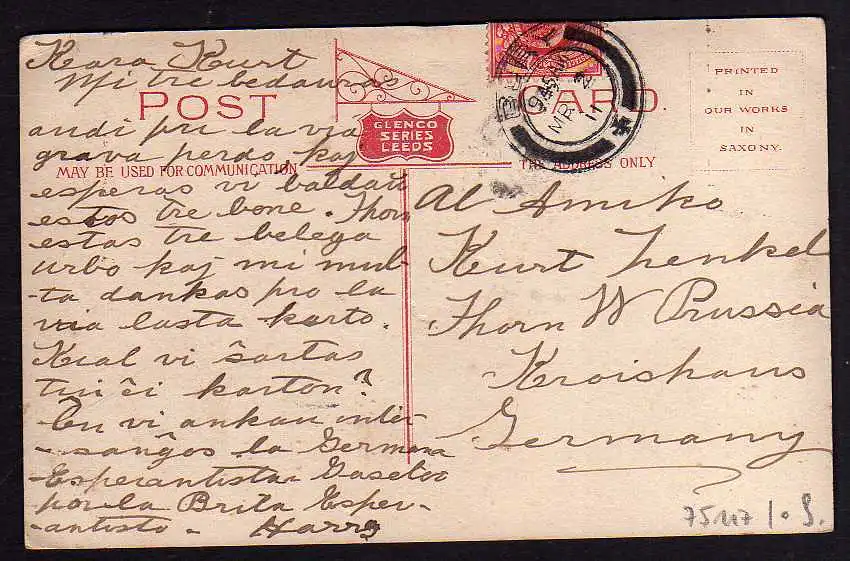 Kara Kurt
Mi tre bedauras
audi pri la via
grava perdo kaj
esperas vi baldaŭ
estos tre bone. Thorn
estas tre belega
urbo kaj mi mul-
-ta dankas pro la
via lasta karto.
Kial vi ŝartas
tui ĉi karton?
Ĉu vi ankau inter-
-sanĝos la Germana
Esperantista Gaseto
por la Brita Esper-
-antisto - Harry
POST CARD.
GLENCO
SERIES
LEEDS
MAY BE USED FOR COMMUNICATION
THE ADDRESS ONLY
PRINTED
IN
OUR WORKS
IN
SAXONY.
9 45 AM
MR 2
11
Al Amiko
Kurt Henkel
Thorn W Prussia
Kroishaus
Germany